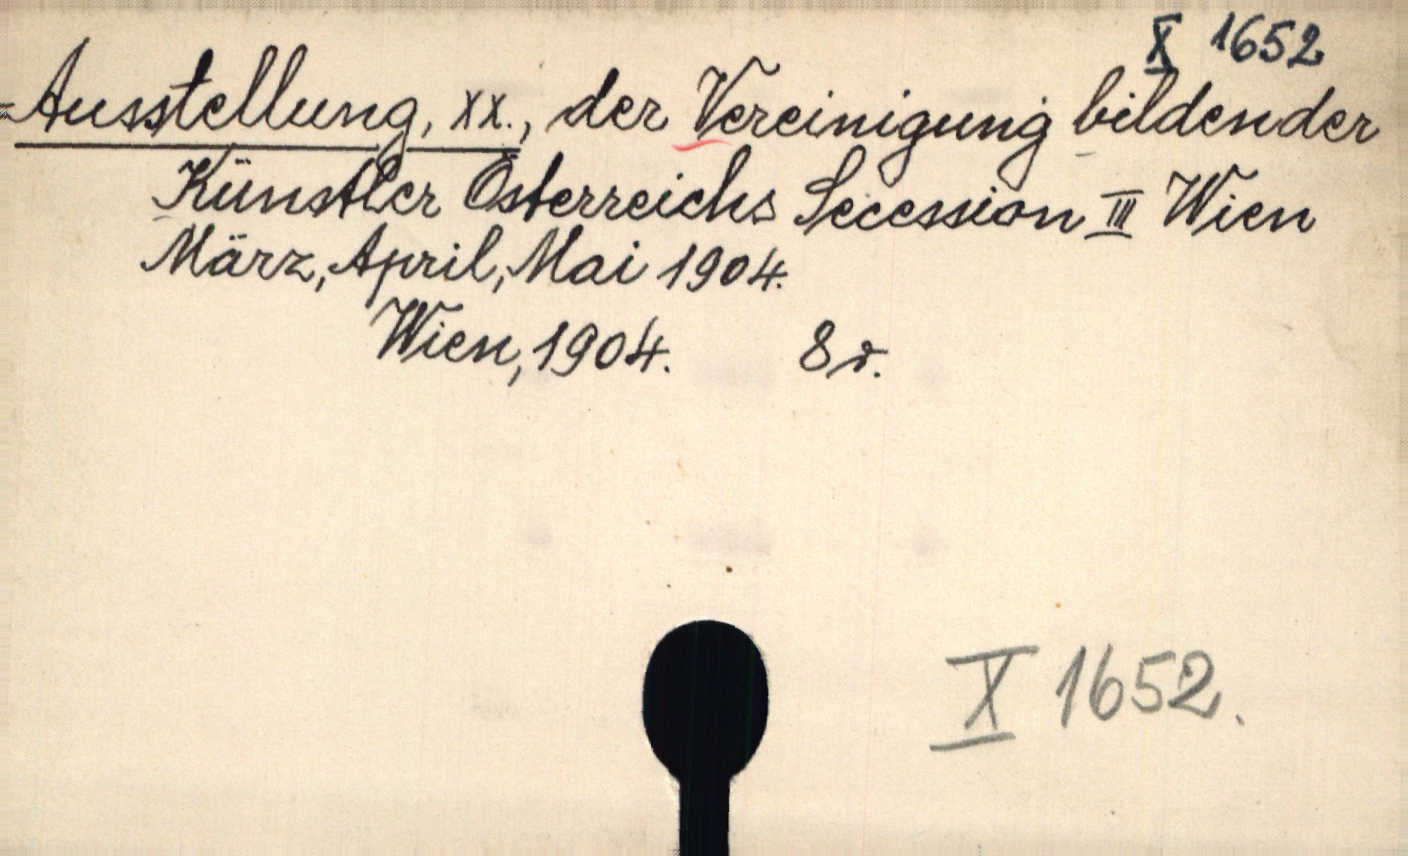 X 1652
Ausstellung, XX., der Vereinigung bildender
Künstler Österreichs Secession III Wien
März, April, Mai 1904.
Wien, 1904. 8 r.
X 1652.